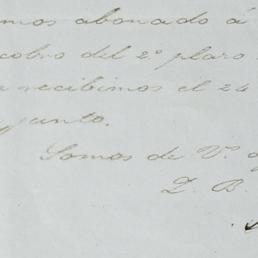 mos abonado á
cobro del 2º plazo
recibimos el 24
junto.
Somos de V.
L. B.